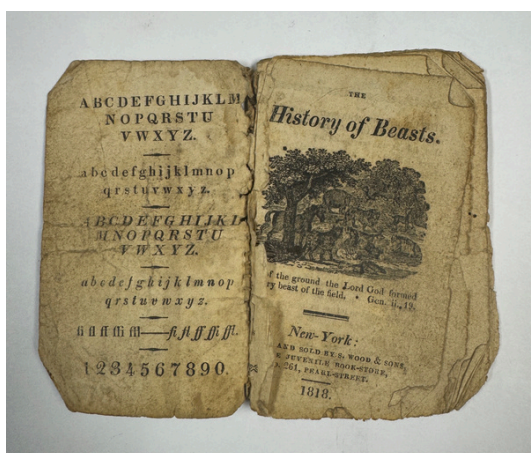 ABCDEFGHIJKLM
NOPQRSTU
VWXYZ.
abcdefghijklmnop
qrstuvwxyz.
ABCDEFGHIJKL
MNOPQRSTU
VWXYZ.
abcdefghijklmnop
qrstuvwxyz.
1234567890.
THE
History of Beasts.
the ground the Lord God formed
beast of the field. • Gen. ii, 19.
New-York:
AND SOLD BY S. WOOD & SONS,
JUVENILE BOOK-STORE,
261, PEARL-STREET.
1818.